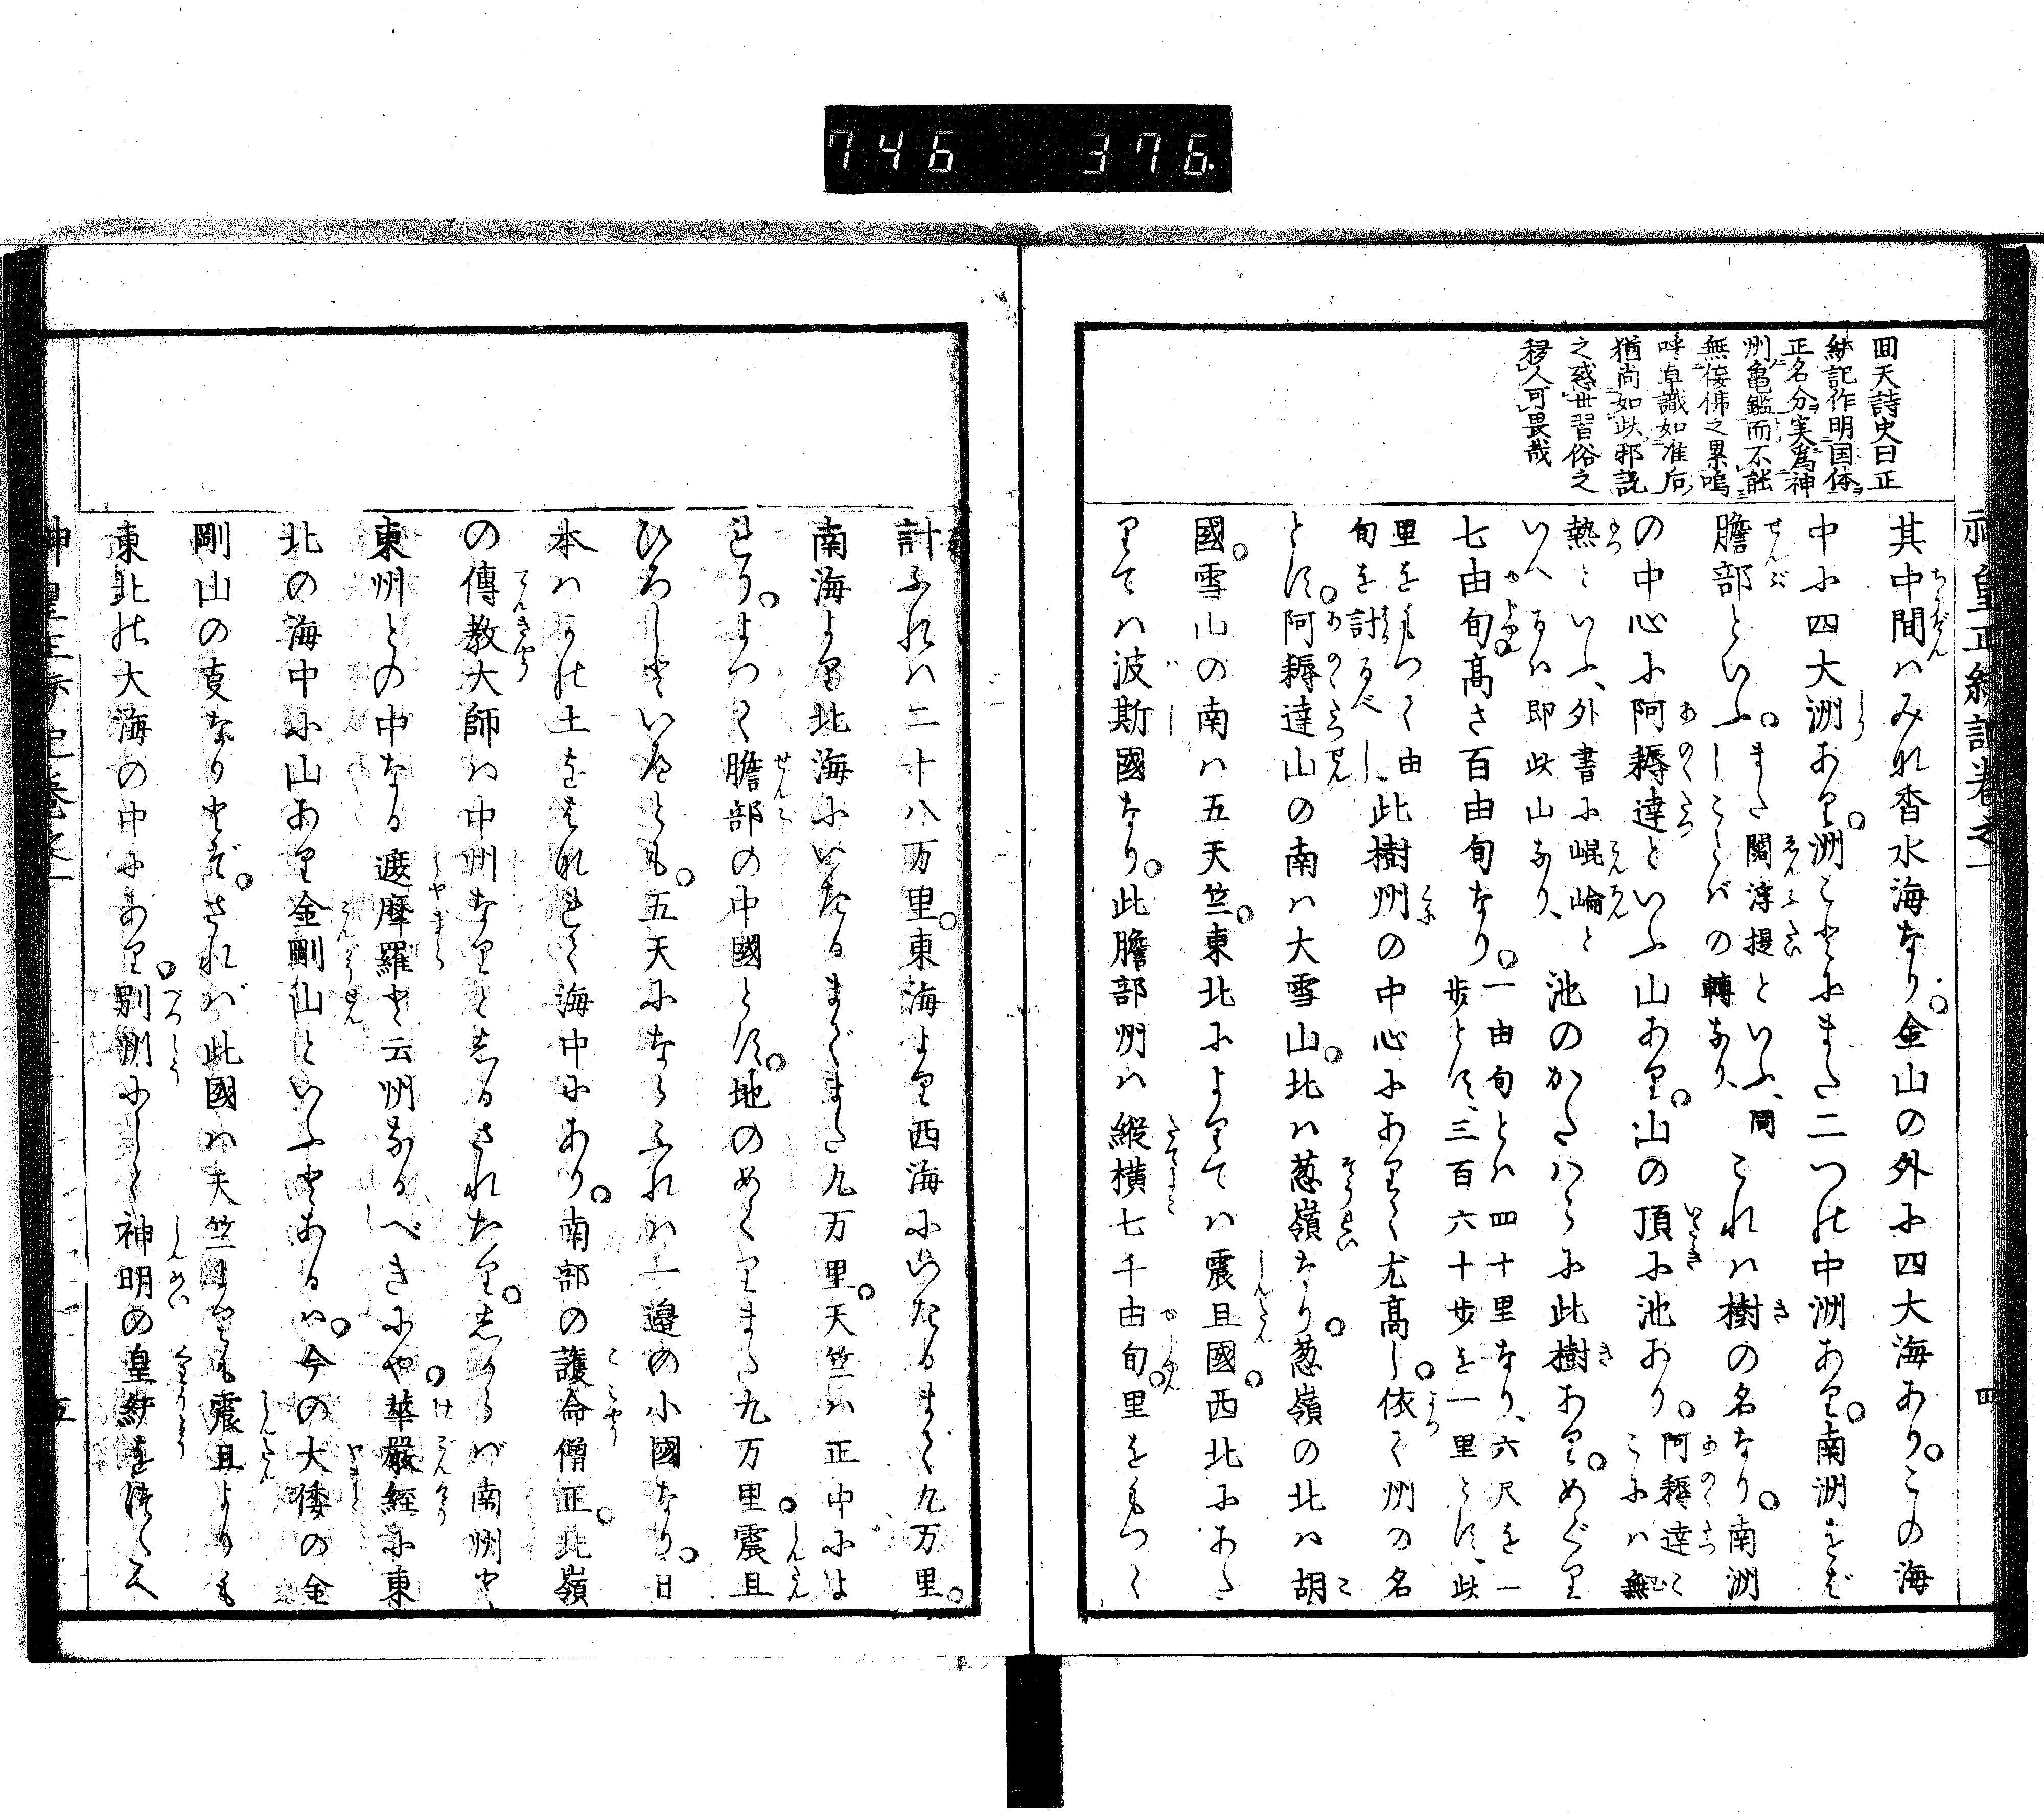 746 376.
回天詩史曰正
統記作明国体
正名分実為神
洲亀鑑而不能
無佞佛之累嗚
呼卓識如准后
猶尚如此邪説
之惑世習俗之
移人可畏哉
神皇正統記巻之一 四
其中間ハみな香水海なり。金山の外に四大海あり。この海
中に四大洲あり。洲ことにまた二つの中洲あり。南洲をば
贍部といふ。また閻浮提といふ、同しことばの轉なり、これハ樹の名なり。南洲
の中心に阿耨達といふ山あり。山の頂に池あり。阿耨達こゝにハ無
熱といふ、外書に崐崘と
いへるハ即此山なり、池のかたハらに此樹あり。めぐり
七由旬高さ百由旬なり。一由旬とハ四十里なり、六尺を一
歩とす、三百六十歩を一里とす、此
里をもつて由
旬を計るべし、此樹州の中心にありて尤高し。依て州の名
とす。阿耨達山の南ハ大雪山。北ハ葱嶺なり。葱嶺の北ハ胡
國。雪山の南ハ五天竺。東北によりてハ震旦國。西北にあた
りてハ波斯國なり。此贍部州ハ縦横七千由旬。里をもつて
計ふれハ二十八万里。東海より西海にいたるまで九万里。
南海より北海にいたるまでまた九万里。天竺ハ正中によ
れり。よつて贍部の中國とす。地のめくりまた九万里。震旦
ひろしといへとも。五天にならふれハ一邉の小國なり。日
本ハかの土をはなれて海中にあり。南部の護命僧正。北嶺
の傳教大師ハ中州なりとしるされたり。しからバ南州と
東州との中なる遮摩羅と云州なるべきにや。華嚴経に東
北の海中に山あり金剛山といふとあるハ。今の大倭の金
剛山の支なりとぞ。されバ此國ハ天竺よりも震旦よりも
東北の大海の中にあり。別州にして神明の皇統を傳たへ
神皇正統記巻之一 五